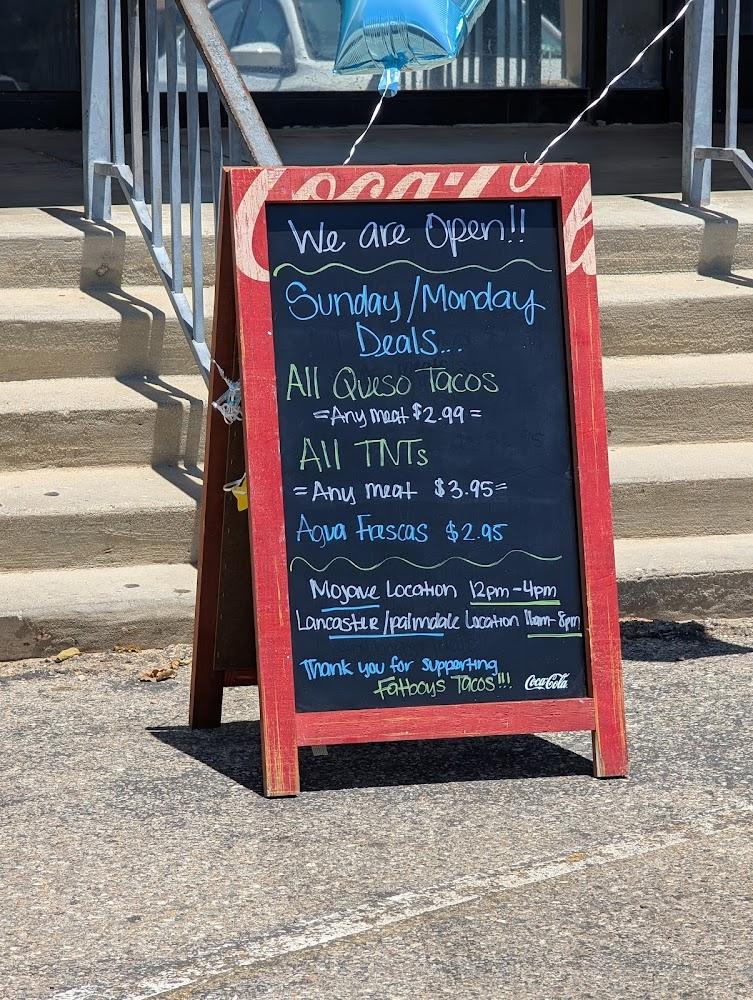 Coca-Cola
We are Open!!
Sunday/Monday
Deals...
All Queso Tacos
=Any meat $2.99=
All TNTs
=Any meat $3.95=
Agua Frescas $2.95
Mojave Location 12pm-4pm
Lancaster/palmdale Location 11am-8pm
Thank you for supporting
Fatboys Tacos!!!
Coca-Cola